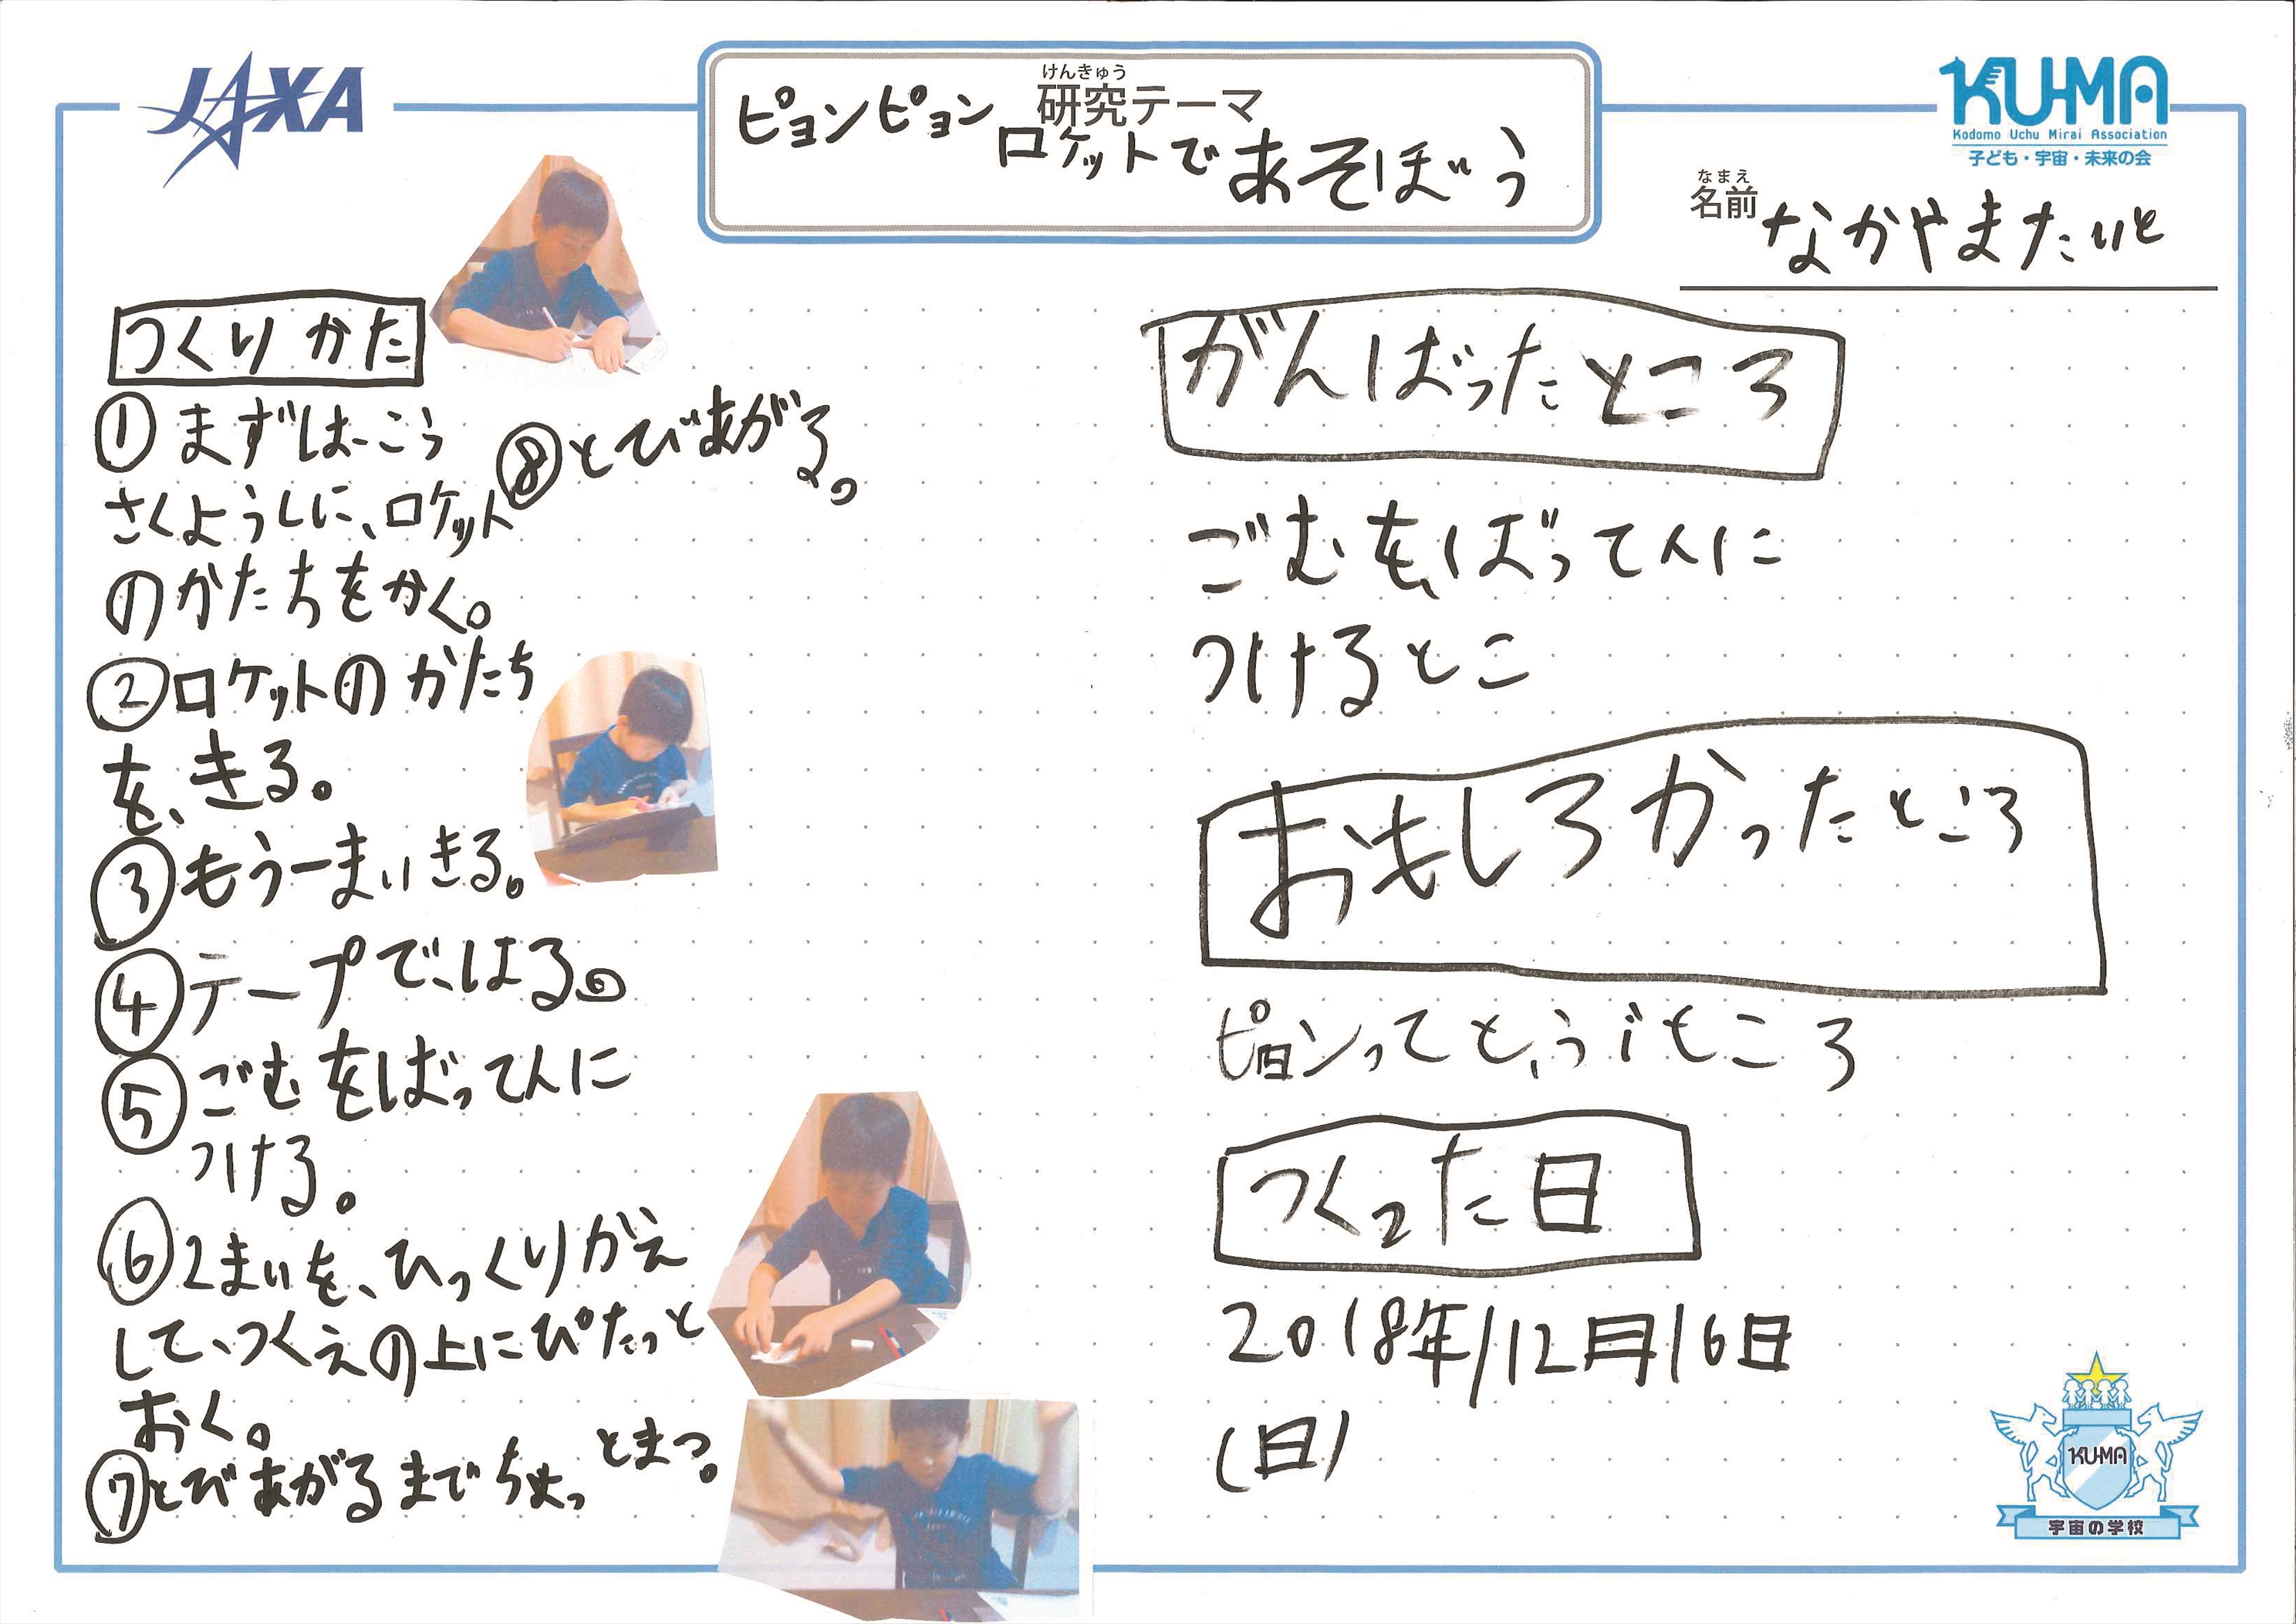 JAXA
けんきゅう
研究テーマ
ピョンピョン
ロケットであそぼう
KU-MA
Kodomo Uchu Mirai Association
子ども・宇宙・未来の会
なまえ
名前
なかやまたいと
つくりかた
①まずはこう
さくようしに、ロケット
のかたちをかく。
②ロケットのかたち
を、きる。
③もう一まいきる。
④テープで、はる。
⑤ごむをばってんに
つける。
⑥2まいを、ひっくりかえ
して、つくえの上にぴたっと
おく。
⑦とびあがるまでちょっ
とまつ。
⑧とびあがる。
がんばったところ
ごむを、ばってんに
つけるとこ
おもしろかったところ
ピョンってと、うぶもころ
つくった日
2018年/12月16日
(日)
KU-MA
宇宙の学校